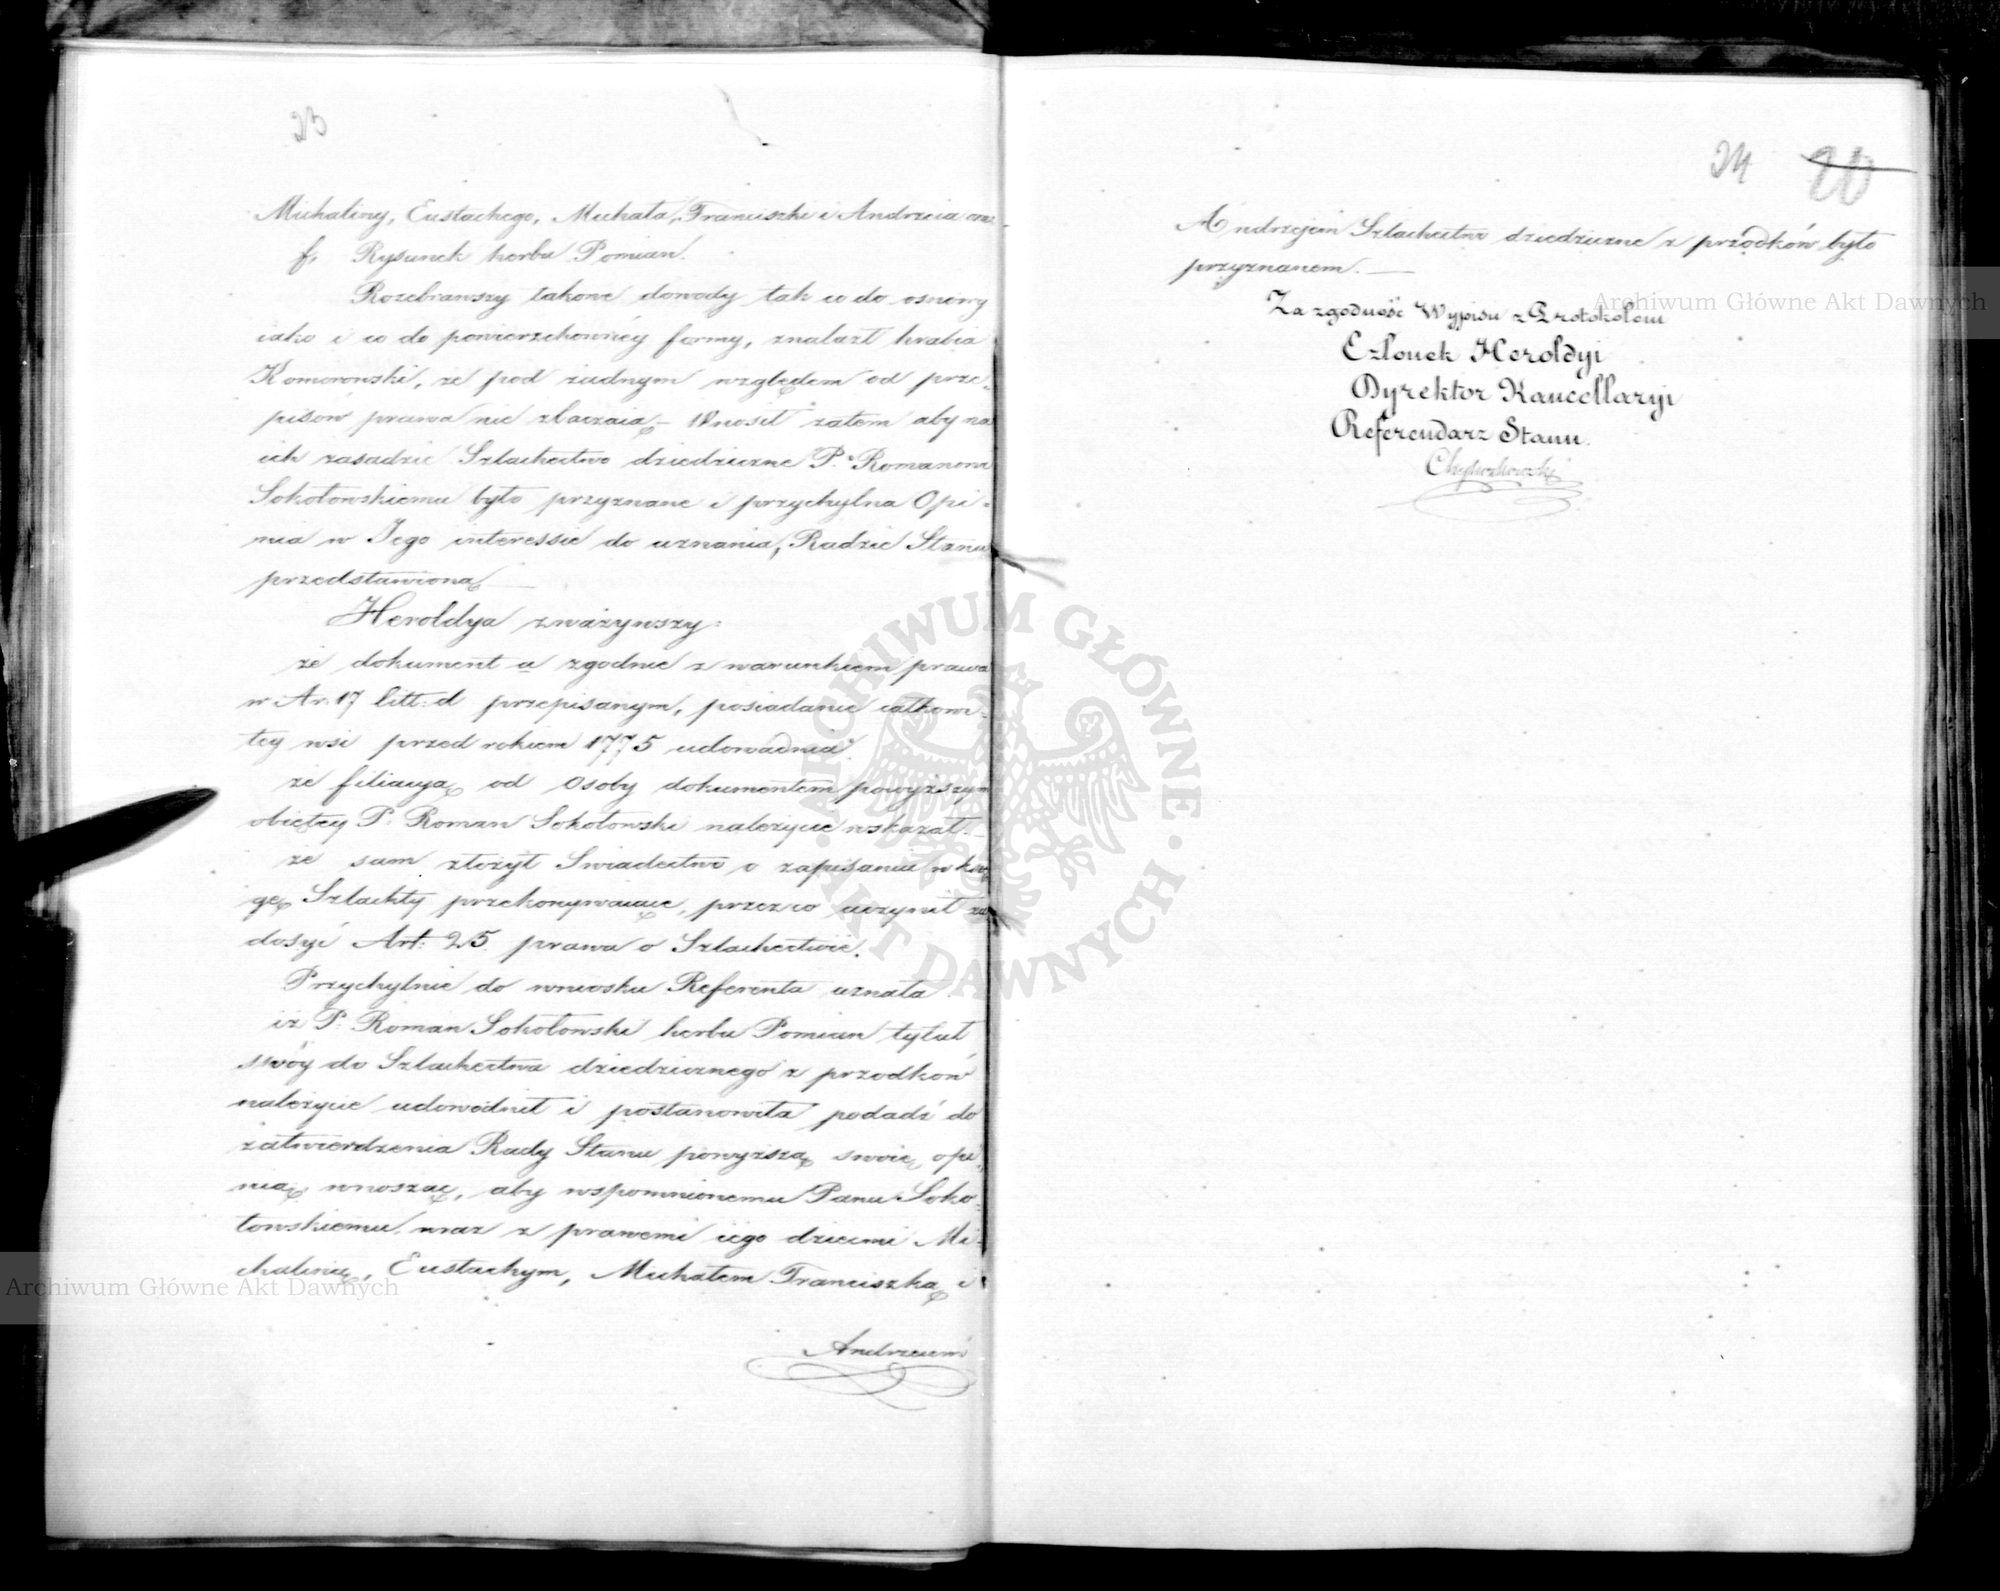 23
Michaliny, Eustachego, Michała, Franciszki i Andrzeia oraz
f, Rysunek herbu Pomian.
Rozebrawszy takowe dowody tak co do osnowy
iako i co do powierzchowney formy, znalazł hrabia
Komorowski, że pod żadnym względem od prze-
pisów prawa nie zbaczaią – Wnosił zatem aby na
ich zasadzie Szlachectwo dziedziczne P. Romanowi
Sokołowskiemu było przyznane i przychylna Opi-
nia w Jego interessie do uznania, Radzie Stanu
przedstawioną
Heroldya zważywszy:
że dokument a zgodnie z warunkiem prawa
w Ar: 17 litt: d przepisanym, posiadanie całkowi-
tey wsi przed rokiem 1775 udowadnia.
że filiacyą od Osoby dokumentem powyższym
obiętey P. Roman Sokołowski należycie wskazał.
że sam złożył Swiadectwo o zapisaniu w księ-
gę Szlachty przekonywaiące, przez co uczynił za
dosyć Art: 25. prawa o Szlachectwie.
Przychylnie do wniosku Referenta uznała
iż P. Roman Sokołowski herbu Pomian tytuł
swóy do Szlachectwa dziedzicznego z przodków
należycie udowodnił i postanowiła podadź do
zatwierdzenia Rady Stanu powyższą swoię opi-
nią, wnosząc, aby wspomnionemu Panu Soko-
łowskiemu wraz z prawemi iego dziećmi Mi-
chaliną, Eustachym, Michałem Franciszką i
Andrzeiem
24 20
Andrzejem Szlachectwo dziedziczne z przodków było
przyznanem. —
Za zgodność Wypisu z Protokółem
Członek Heroldyi
Dyrektor Kancellaryi
Referendarz Stanu.
Archiwum Główne Akt Dawnych
ARCHIWUM GŁÓWNE · AKT DAWNYCH ·
Archiwum Główne Akt Dawnych